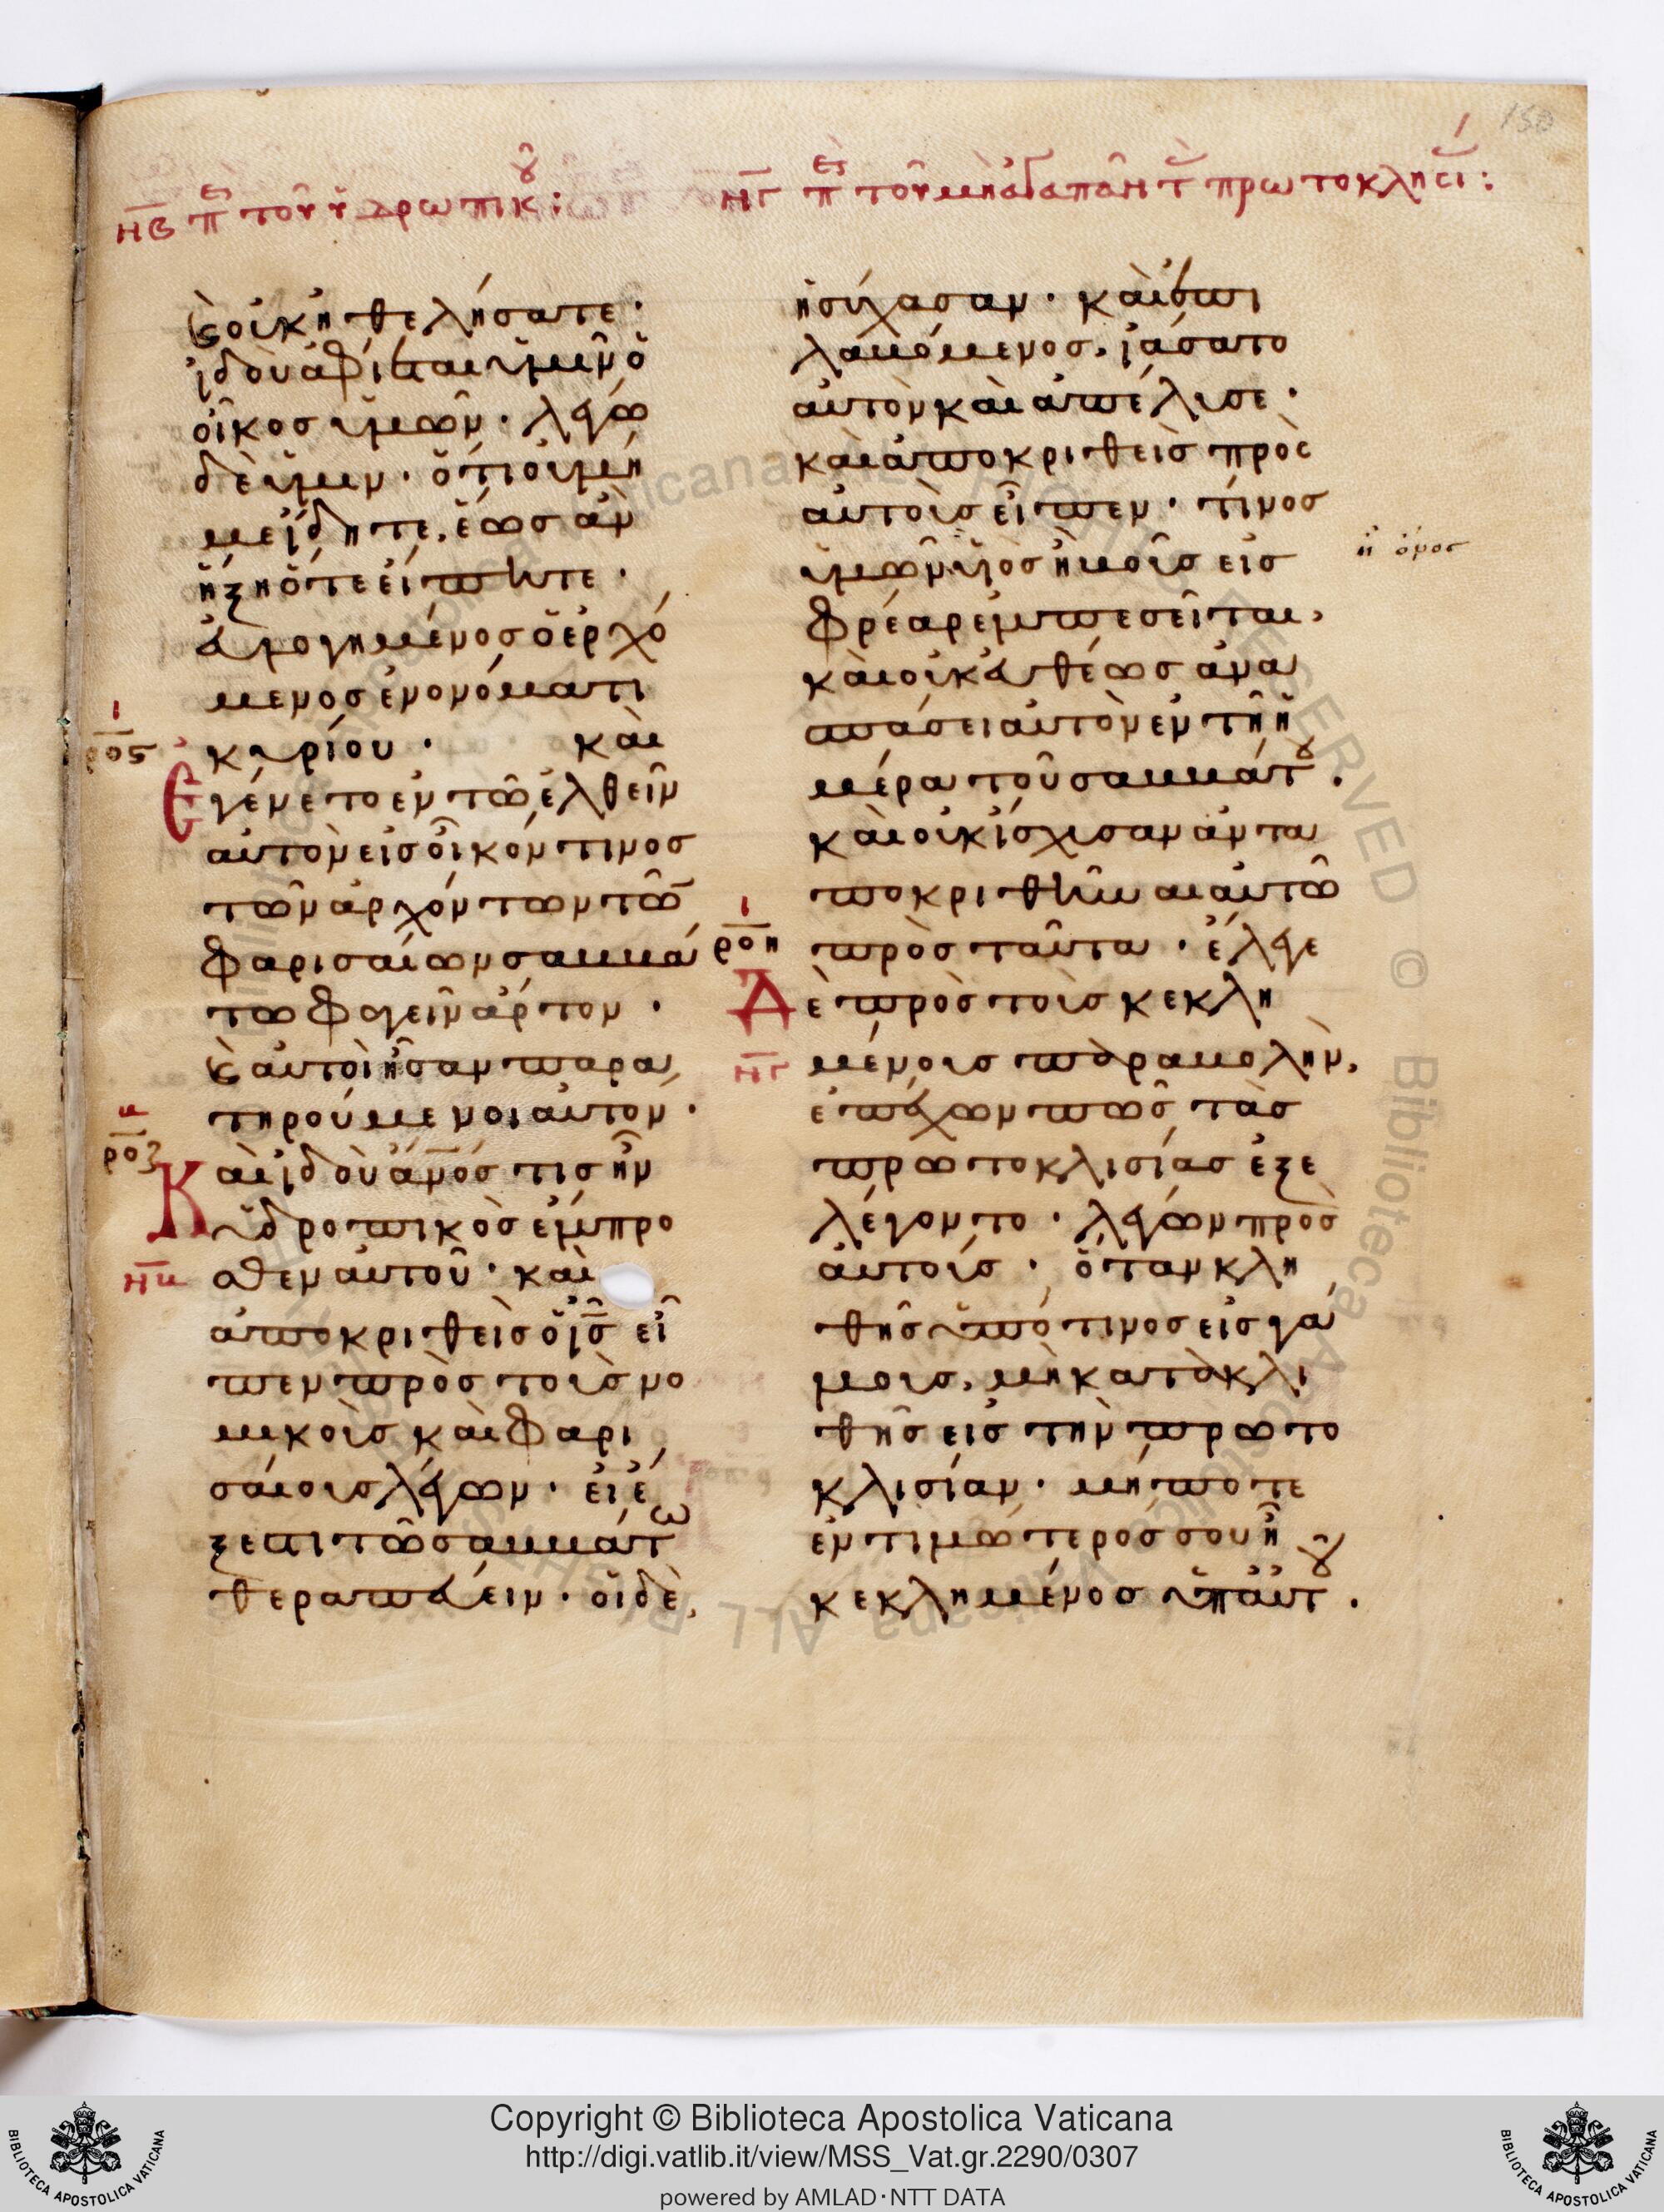 150
ΝΒ π ες τοῦ ὑδρωπικοῦ:
ΝΓ π ες τοῦ μὴ ἀγαπᾶν τ πρωτοκλησι:
(καὶ) οὐκ ἠθελήσατε·
ἰδοὺ ἀφίεται ὑμῖν ὁ
οἶκος ὑμῶν· λέγω
δὲ ὑμιν· ὅτι οὐ μή
με ἴδητε, ἕως ἂν
ἥξη ὅτε εἴπητε·
εὐλογημένος ὁ ἐρχό
μενος ἐν ὀνόματι
ροϛ
κυρίου· καὶ
Ἐγένετο ἐν τῶ ἐλθεῖν
αὐτὸν εἰς οἶκόν τινος
τῶν ἀρχόντων τῶ̅
φαρισαίων σαββά
τω φαγεῖν ἄρτον·
(καὶ) αὐτοὶ ἦσαν παρα
τηρούμενοι αὐτον·
ροζ
Καὶ ἰδοὺ ἄ̅ν̅ο̅ς τις ἦν
ὑδροπικὸς ἔμπρο
ΝΒ
σθεν αὐτοῦ· καὶ
ἀποκριθεὶς ὁ ι̅ς̅ εἶ
πεν πρὸς τοὺς νο
μικοὺς καὶ φαρι
σαίους λέγων· εἰ ἔ
ξεστι τῶ σαββάτω
θεραπεύειν· οἱ δὲ,
ἡσύχασαν· καὶ ἐπι
λαβόμενος, ἰάσατο
αὐτὸν καὶ ἀπέλυσε·
καὶ ἀποκριθεὶς πρὸς
αὐτοὺς εἶπεν· τίνος
ὑμῶν υἱὸς ἢ βοῦς εἰς
ἢ ὄνος
φρέαρ ἐμπεσεῖται,
καὶ οὐκ εὐθέως ἀνα
σπάσει αὐτὸν ἐν τῆ ἡ
μέρα τοῦ σαββάτου.
καὶ οὐκ ἴσχυσαν ἀντα
ποκριθῆναι αὐτῶ
ροη
πρὸς ταῦτα· ἔλεγε
Δὲ πρὸς τοὺς κεκλη
ΝΓ
μένους παραβολὴν,
ἐπέχων πῶς τὰς
πρωτοκλισίας ἐξε
λέγοντο· λέγων πρὸς
αὐτούς· ὅταν κλη
θῆς ὑπό τινος εἰς γά
μους, μὴ κατακλι
θῆς εἰς τὴν πρωτο
κλισίαν· μήποτε
ἐντιμώτερός σου ἦ
κεκλημένος ὑπ αὐτοῦ.
Copyright © Biblioteca Apostolica Vaticana
http://digi.vatlib.it/view/MSS_Vat.gr.2290/0307
powered by AMLAD·NTT DATA